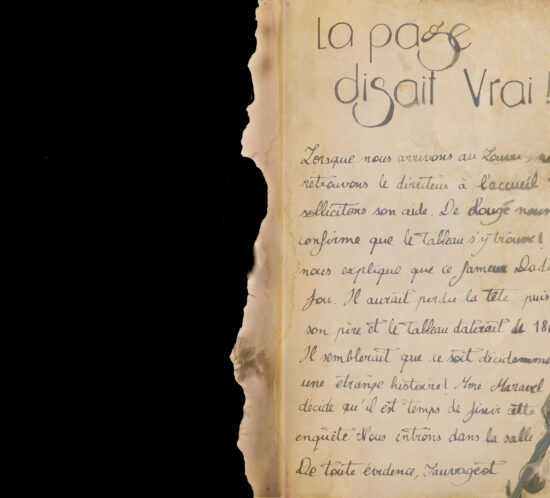 La page
disait Vrai !
Lorsque nous arrivons au Louvre,
retrouvons le directeur à l'accueil
sollicitons son aide. De Rougé nous
confirme que le tableau s'y trouve !
nous explique que ce fameux Dad
fou. Il aurait perdu la tête puis
son père et le tableau daterait de 18
Il semblerait que ce soit décidemme
une étrange histoire ! Mme Maravel
décide qu'il est temps de finir cette
enquête. Nous entrons dans la salle
De toute évidence, Sauvageot